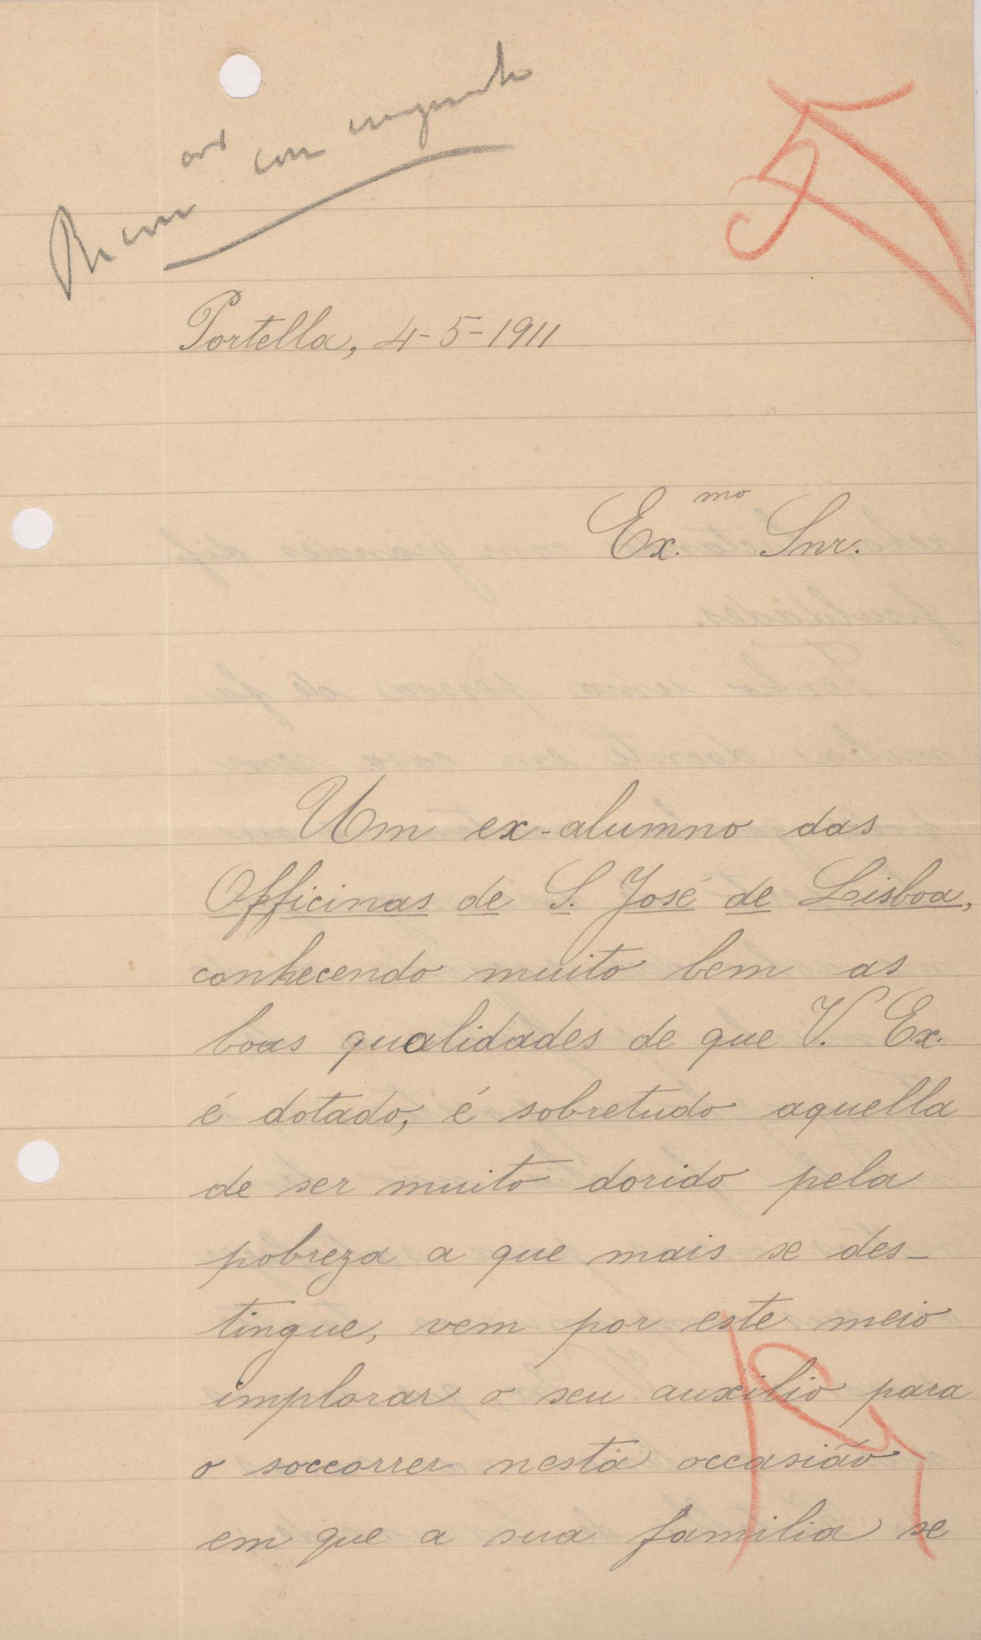 57
Portella, 4-5-1911
Ex.mo Snr.
Um ex-alumno das
Officinas de S. José de Lisboa,
conhecendo muito bem as
boas qualidades de que V. Ex.
é dotado, é sobretudo aquella
de ser muito dorido pela
pobreza a que mais se des-
tingue, vem por este meio
implorar o seu auxilio para
o soccorrer nesta occasião
em que a sua familia se
R